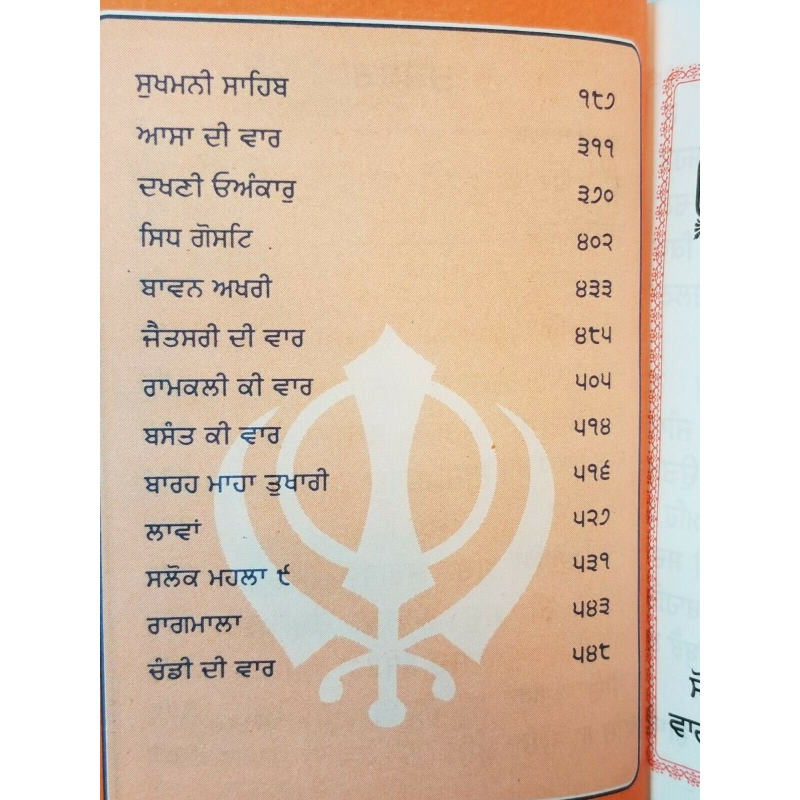 ਸੁਖਮਨੀ ਸਾਹਿਬ ੧੮੭
ਆਸਾ ਦੀ ਵਾਰ ੩੧੧
ਦਖਣੀ ਓਅੰਕਾਰੁ ੩੭੦
ਸਿਧ ਗੋਸਟਿ ੪੦੨
ਬਾਵਨ ਅਖਰੀ ੪੩੩
ਜੈਤਸਰੀ ਦੀ ਵਾਰ ੪੮੫
ਰਾਮਕਲੀ ਕੀ ਵਾਰ ੫੦੫
ਬਸੰਤ ਕੀ ਵਾਰ ੫੧੪
ਬਾਰਹ ਮਾਹਾ ਤੁਖਾਰੀ ੫੧੬
ਲਾਵਾਂ ੫੨੭
ਸਲੋਕ ਮਹਲਾ ੯ ੫੩੧
ਰਾਗਮਾਲਾ ੫੪੩
ਚੰਡੀ ਦੀ ਵਾਰ ੫੪੮